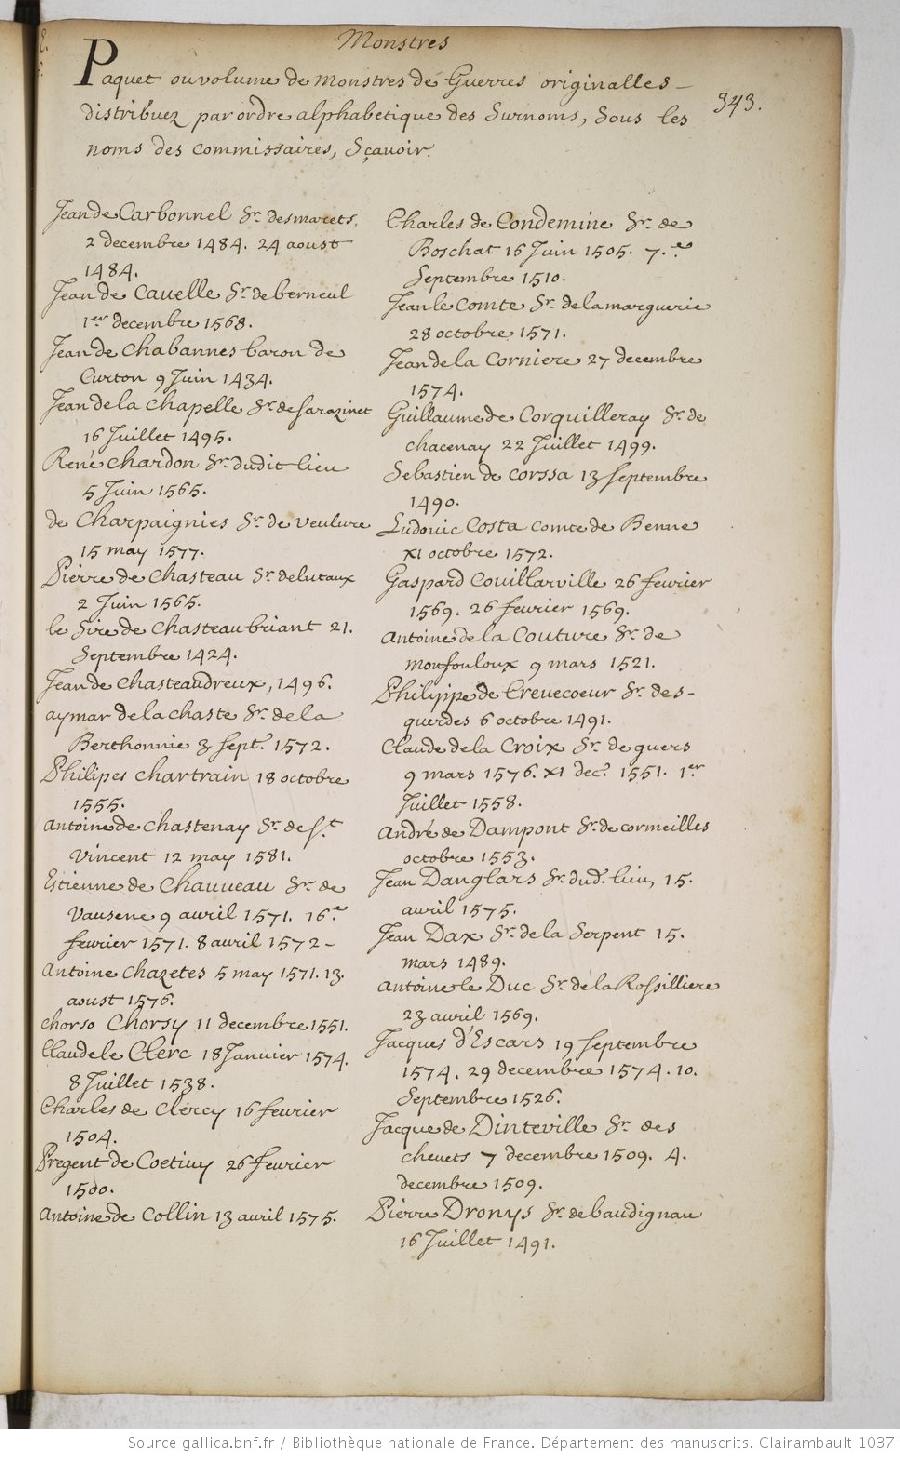 Monstres
Paquet ou volume de monstres de Guerres originalles
distribuez par ordre alphabetique des Surnoms, Sous les
noms des commissaires, Sçavoir
343.
Jean de Carbonnel Sr. desmarets.
2 decembre 1484. 24 aoust
1484.
Jean de Cavelle Sr. de berneul
1er decembre 1568.
Jean de Chabannes baron de
Curton 9 Juin 1434.
Jean de la Chapelle Sr. de sarazinet
16 Juillet 1495.
René Chardon Sr. dudit lieu
5 Juin 1565.
de Charpaignies Sr. de veulure
15 may 1577.
Pierre de Chasteau Sr. delutaux
2 Juin 1565.
le Sire de Chasteaubriant 21.
Septembre 1424.
Jean de Chasteaudreux, 1496.
aymar de la chaste Sr. de la
Berthonnie 3 Sept. 1572.
Philipes Chartrain 18 octobre
1555.
Antoine de Chastenay Sr. de St.
Vincent 12 may 1581.
Estienne de Chauveau Sr. de
Vausene 9 avril 1571. 16.e
fevrier 1571. 8 avril 1572 -
Antoine Chazetes 5 may 1571. 13.
aoust 1576.
Chorso Chorsy 11 decembre 1551.
Claude le Clerc 18 Janvier 1574.
8 Juillet 1538.
Charles de Clercy 16 fevrier
1504.
Pregent de Coetivy 26 fevrier
1500.
Antoine de Collin 13 avril 1575.
Charles de Condemine Sr. de
Boschat 16 Juin 1505. 7.e
Septembre 1510.
Jean le Comte Sr. de la marguerie
28 octobre 1571.
Jean de la Corniere 27 decembre
1574.
Guillaume de Corquilleray Sr. de
chacenay 22 Juillet 1499.
Sebastien de Corssa 13 Septembre
1490.
Ludovic Costa comte de Benne
XI octobre 1572.
Gaspard Couillarville 26 fevrier
1569. 26 fevrier 1569.
Antoine de la Couture Sr. de
monfouloux 9 mars 1521.
Philippe de Crevecoeur Sr. des-
querdes 6 octobre 1491.
Claude de la Croix Sr. de guers
9 mars 1576. XI dec. 1551. 1er
Juillet 1558.
André de Dampont Sr. de cormeilles
octobre 1553.
Jean Danglars Sr. dud. lieu, 15.
avril 1575.
Jean Dax Sr. de la Serpent 15.
mars 1489.
Antoine le Duc Sr. de la Rossilliere
23 avril 1569.
Jacques d'Escars 19 Septembre
1574. 29 decembre 1574. 10.
Septembre 1526.
Jacque de Dinteville Sr. des
chenets 7 decembre 1509. 4.
decembre 1509.
Pierre Dronys Sr. de baudignau
16 Juillet 1491.
Source gallica.bnf.fr / Bibliothèque nationale de France. Département des manuscrits. Clairambault 1037